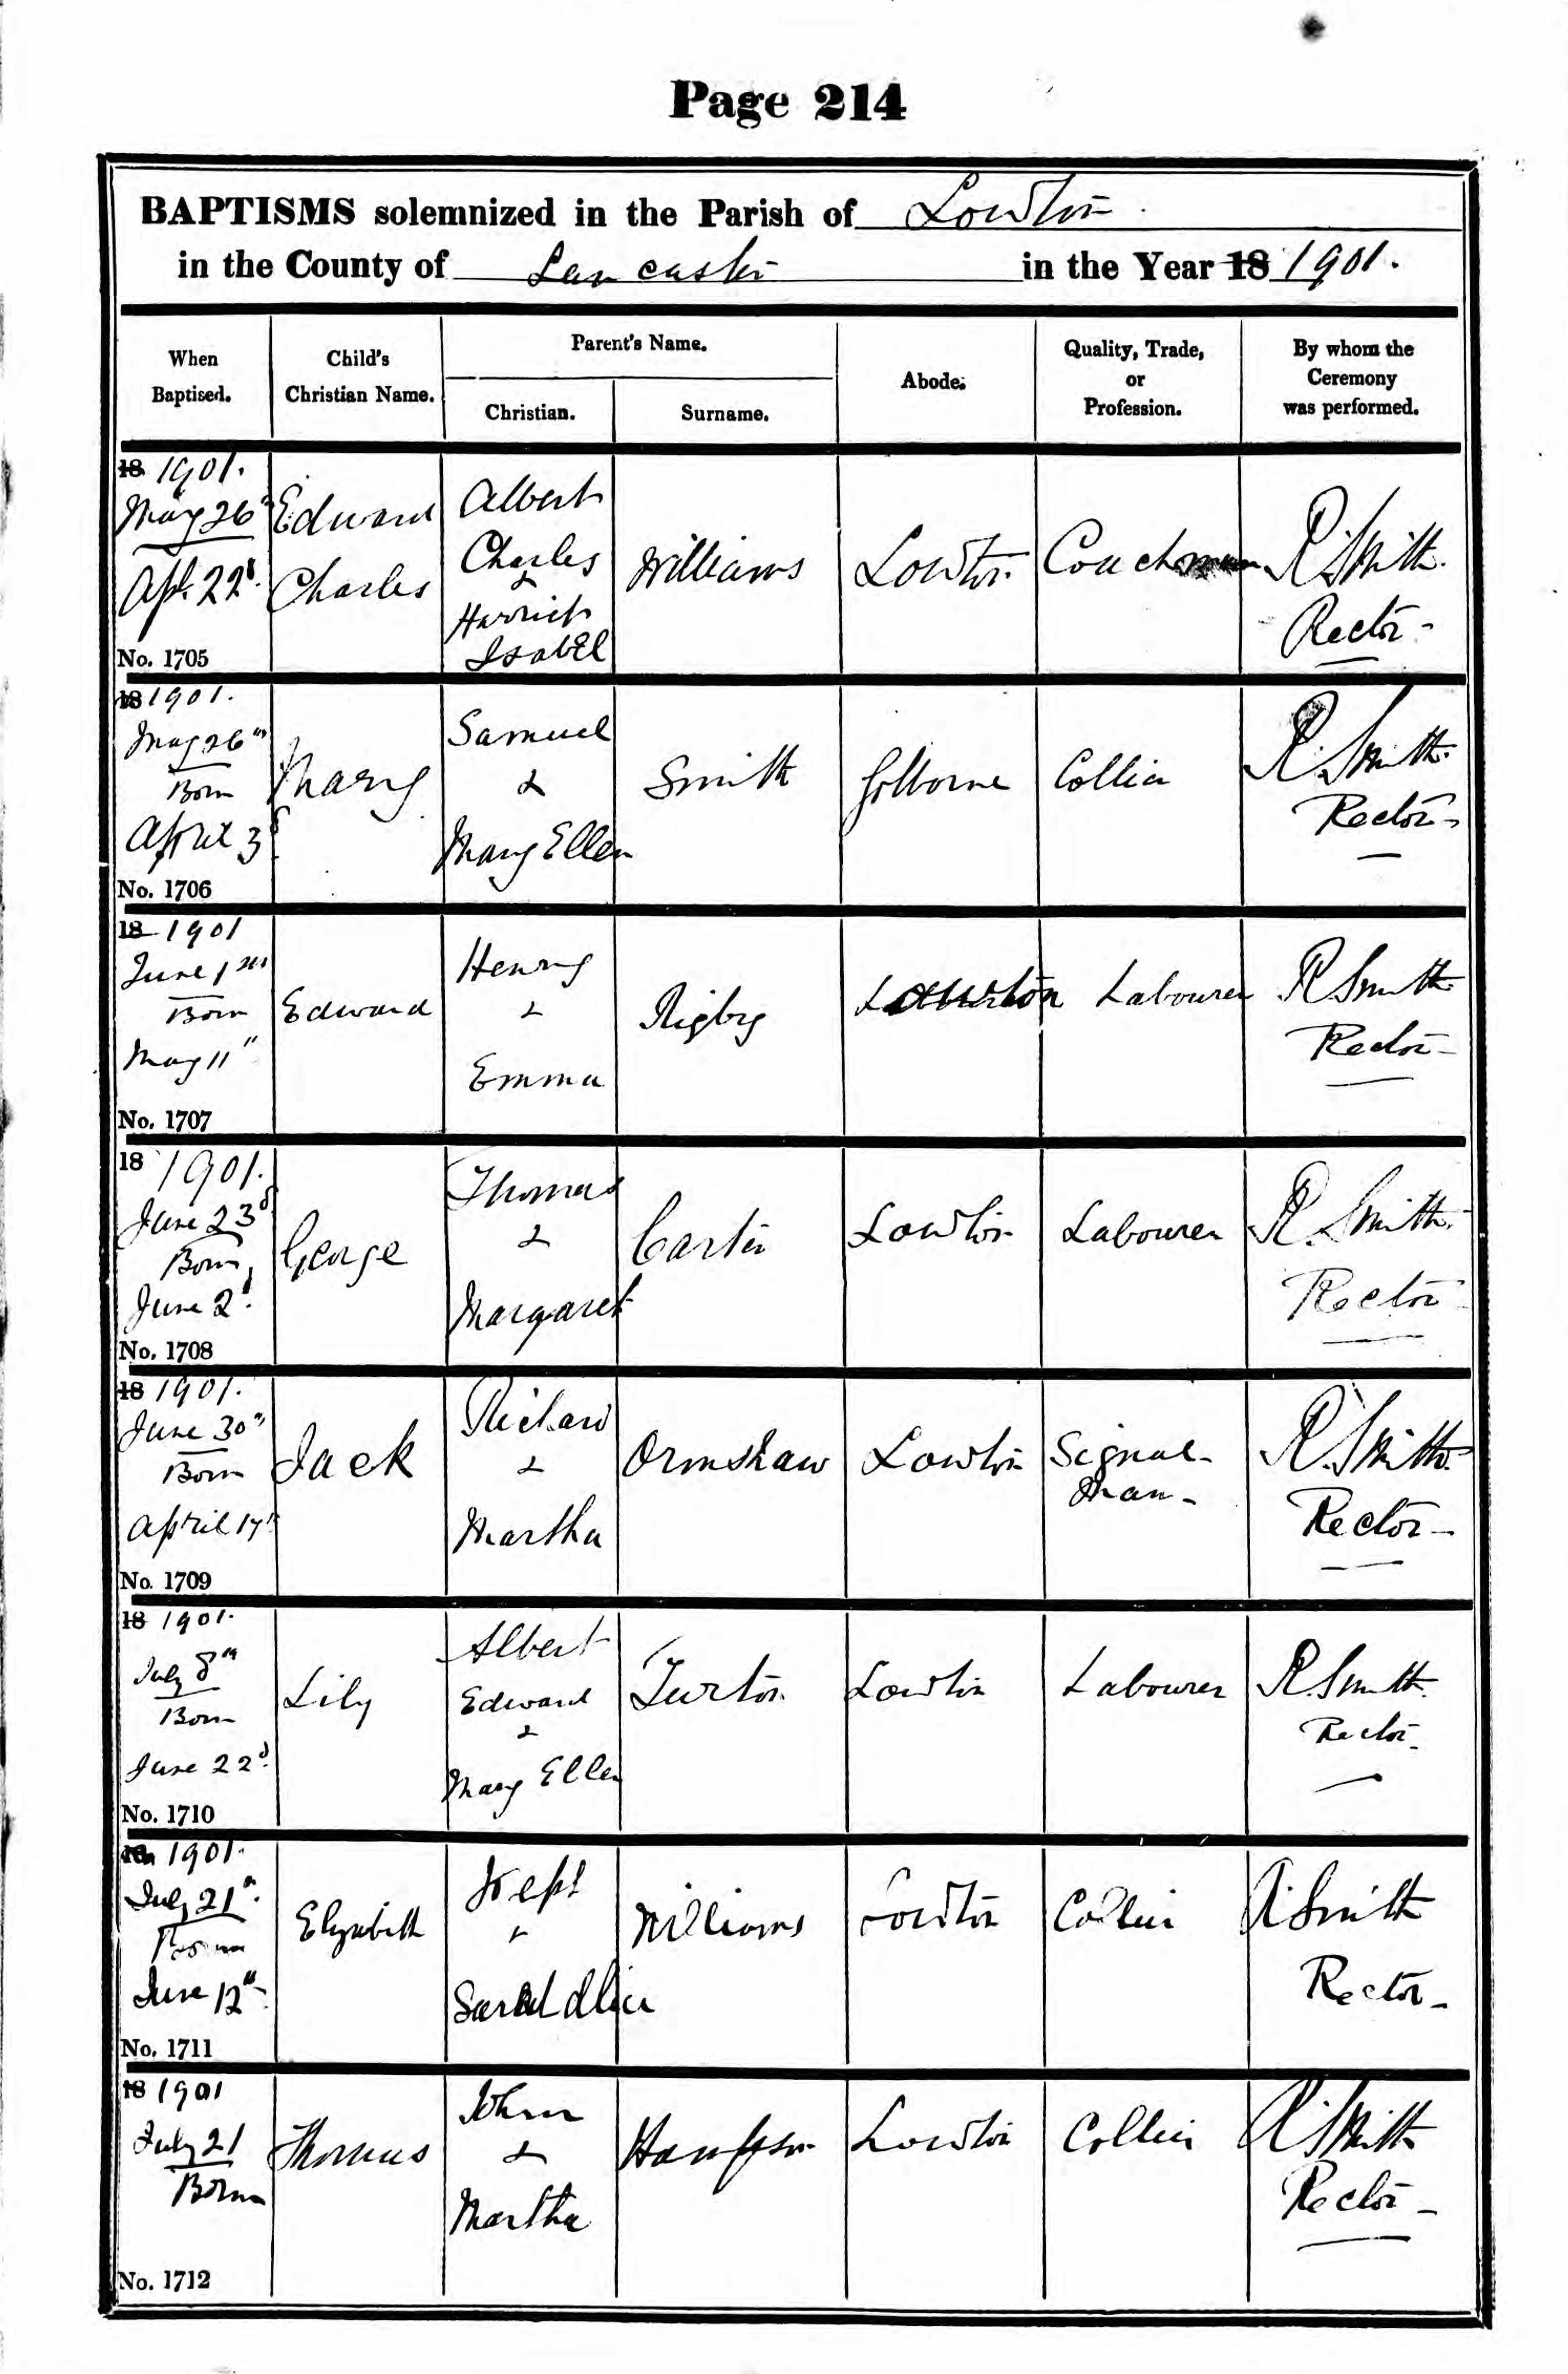 Page 214
BAPTISMS solemnized in the Parish of Lowton
in the County of Lancaster in the Year 18 1901.
When Baptised.
Child's Christian Name.
Parent's Name.
Christian.
Surname.
Abode.
Quality, Trade, or Profession.
By whom the Ceremony was performed.
18 1901.
May 26th
Apl. 22d.
No. 1705
Edward
Charles
Albert
Charles
&
Harriet
Isabel
Williams
Lowton
Coachman
R. Smith.
Rector-
18 1901.
May 26th
Born
April 3d
No. 1706
Mary
Samuel
&
Mary Ellen
Smith
Golborne
Collier
R. Smith.
Rector-
18 1901
June 1st
Born
May 11"
No. 1707
Edward
Henry
&
Emma
Rigby
Lowton
Labourer
R Smith
Rector-
18 1901.
June 23d
Born
June 2d.
No. 1708
George
Thomas
&
Margaret
Carter
Lowton
Labourer
R. Smith.
Rector
18 1901.
June 30th
Born
April 17th
No. 1709
Jack
Richard
&
Martha
Ormshaw
Lowton
Signal-
man-
R. Smith.
Rector-
18 1901.
July 8th
Born
June 22d.
No. 1710
Lily
Albert
Edward
&
Mary Ellen
Turton
Lowton
Labourer
R. Smith.
Rector-
18 1901.
July 21st.
Born
June 12th
No. 1711
Elizabeth
Joseph
&
Sarah Alice
Williams
Lowton
Collier
R Smith
Rector-
18 1901
July 21
Born
No. 1712
Thomas
John
&
Martha
Hampson
Lowton
Collier
R. Smith
Rector-